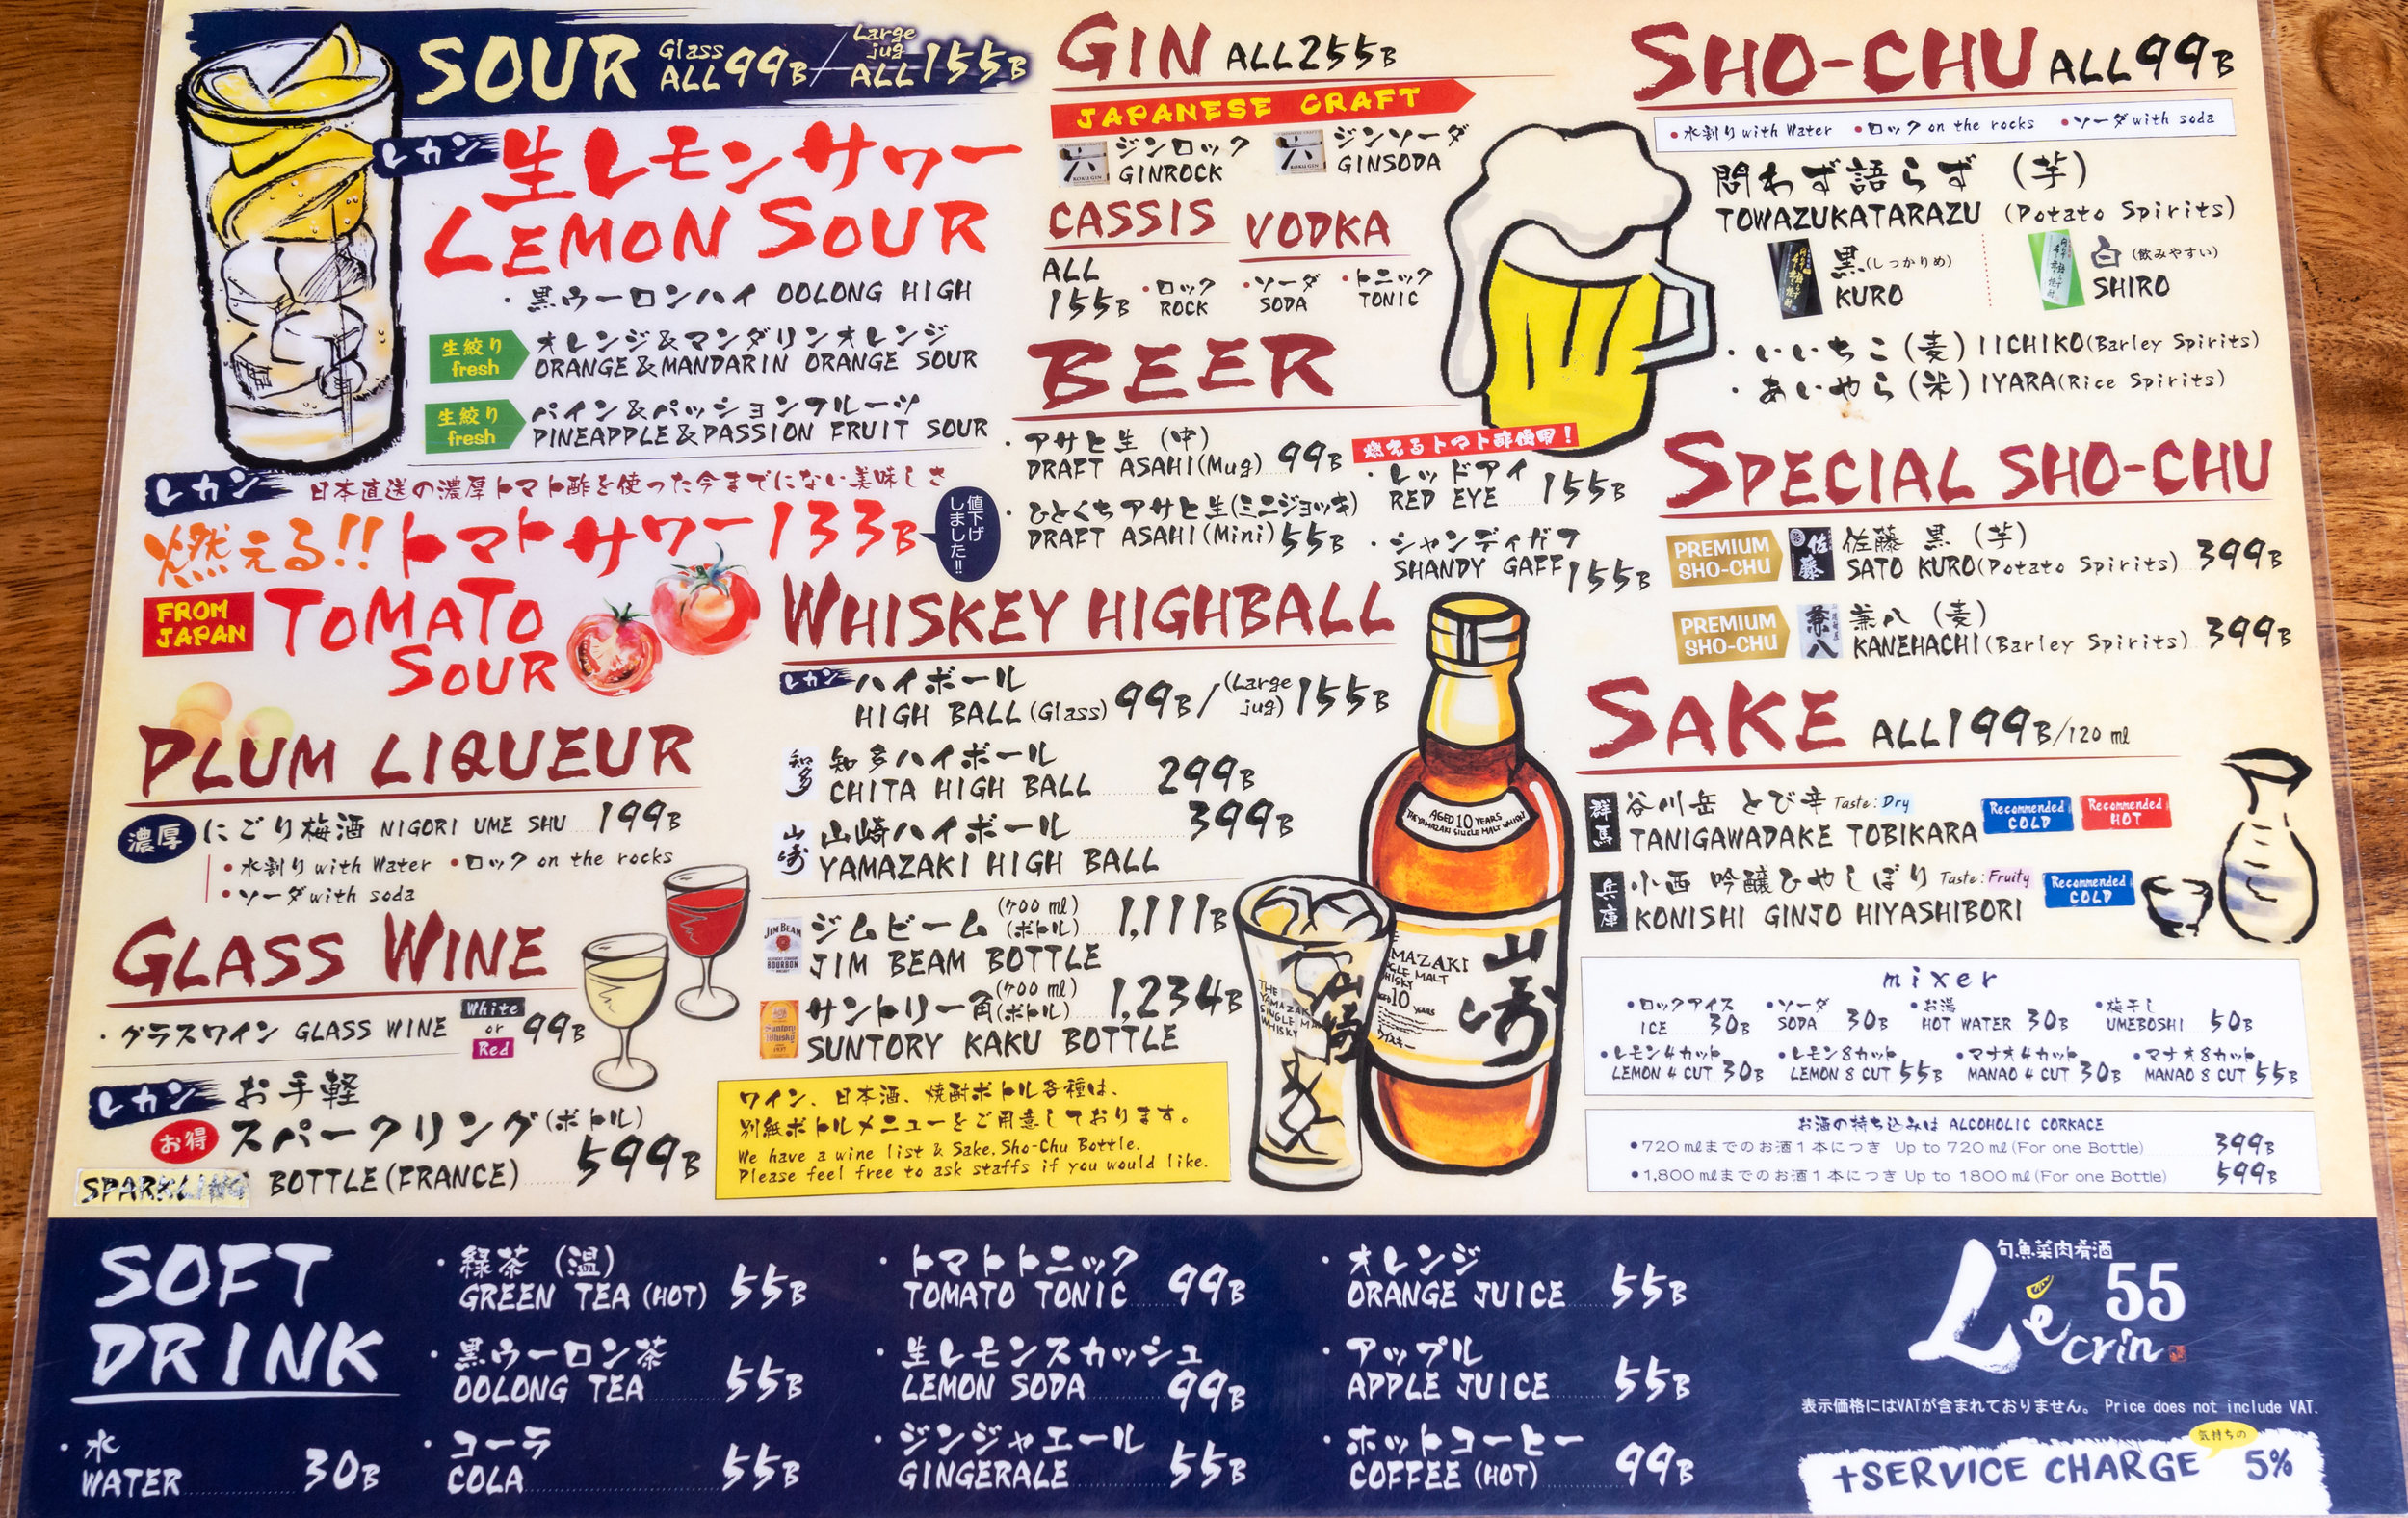 SOUR Glass ALL99B/Large jug ALL155B
レカン 生レモンサワー
LEMON SOUR
・黒ウーロンハイ OOLONG HIGH
生絞り fresh オレンジ&マンダリンオレンジ
ORANGE&MANDARIN ORANGE SOUR
生絞り fresh パイン&パッションフルーツ
PINEAPPLE&PASSION FRUIT SOUR
レカン 日本直送の濃厚トマト酢を使った今までにない美味しさ
燃える!!トマトサワー133B
値下げしました!!
FROM JAPAN TOMATO
SOUR
PLUM LIQUEUR
濃厚 にごり梅酒 NIGORI UME SHU 199B
•水割り with Water •ロック on the rocks
•ソーダ with soda
GLASS WINE
・グラスワイン GLASS WINE White or Red 99B
レカン お手軽
お得 スパークリング(ボトル)
SPARKLING BOTTLE(FRANCE) 599B
GIN ALL255B
JAPANESE CRAFT
六 ジンロック
GINROCK
六 ジンソーダ
GINSODA
CASSIS VODKA
ALL 155B
・ロック ROCK
・ソーダ SODA
・トニック TONIC
BEER
・アサヒ生(中)
DRAFT ASAHI(Mug) 99B
・ひとくちアサヒ生(ミニジョッキ)
DRAFT ASAHI(Mini) 55B
燃えるトマト酢使用!
・レッドアイ
RED EYE 155B
・シャンディガフ
SHANDY GAFF 155B
WHISKEY HIGHBALL
レカン ハイボール
HIGH BALL(Glass) 99B/(Large jug)155B
知多 知多ハイボール
CHITA HIGH BALL 299B
山崎 山崎ハイボール 399B
YAMAZAKI HIGH BALL
JIM BEAM ジムビーム(700 ml)(ボトル) 1,111B
JIM BEAM BOTTLE
Suntory Whisky サントリー角(700 ml)(ボトル) 1,234B
SUNTORY KAKU BOTTLE
ワイン、日本酒、焼酎ボトル各種は、
別紙ボトルメニューをご用意しております。
We have a wine list & Sake. Sho-Chu Bottle.
Please feel free to ask staffs if you would like.
AGED 10 YEARS
山崎
SHO-CHU ALL99B
•水割り with Water •ロック on the rocks •ソーダ with soda
問わず語らず (芋)
TOWAZUKATARAZU (Potato Spirits)
黒(しっかりめ)
KURO
白(飲みやすい)
SHIRO
・いいちこ(麦)IICHIKO(Barley Spirits)
・あいやら(米)IYARA(Rice Spirits)
SPECIAL SHO-CHU
PREMIUM SHO-CHU 佐藤 佐藤 黒 (芋)
SATO KURO(Potato Spirits) 399B
PREMIUM SHO-CHU 兼八 兼八 (麦)
KANEHACHI(Barley Spirits) 399B
SAKE ALL199B/120 ml
群馬 谷川岳 とび辛 Taste:Dry Recommended COLD Recommended HOT
TANIGAWADAKE TOBIKARA
兵庫 小西 吟醸ひやしぼり Taste:Fruity Recommended COLD
KONISHI GINJO HIYASHIBORI
mixer
•ロックアイス ICE 30B
•ソーダ SODA 30B
•お湯 HOT WATER 30B
•梅干し UMEBOSHI 50B
•レモン4カット LEMON 4 CUT 30B
•レモン8カット LEMON 8 CUT 55B
•マナオ4カット MANAO 4 CUT 30B
•マナオ8カット MANAO 8 CUT 55B
お酒の持ち込みは ALCOHOLIC CORKACE
•720 mlまでのお酒1本につき Up to 720 ml(For one Bottle) 399B
•1,800 mlまでのお酒1本につき Up to 1800 ml(For one Bottle) 599B
SOFT
DRINK
・水
WATER 30B
・緑茶(温)
GREEN TEA (HOT) 55B
・黒ウーロン茶
OOLONG TEA 55B
・コーラ
COLA 55B
・トマトトニック
TOMATO TONIC 99B
・生レモンスカッシュ
LEMON SODA 99B
・ジンジャエール
GINGERALE 55B
・オレンジ
ORANGE JUICE 55B
・アップル
APPLE JUICE 55B
・ホットコーヒー
COFFEE (HOT) 99B
旬魚菜肉肴酒
Le crin 55
表示価格にはVATが含まれておりません。 Price does not include VAT.
気持ちの
+SERVICE CHARGE 5%